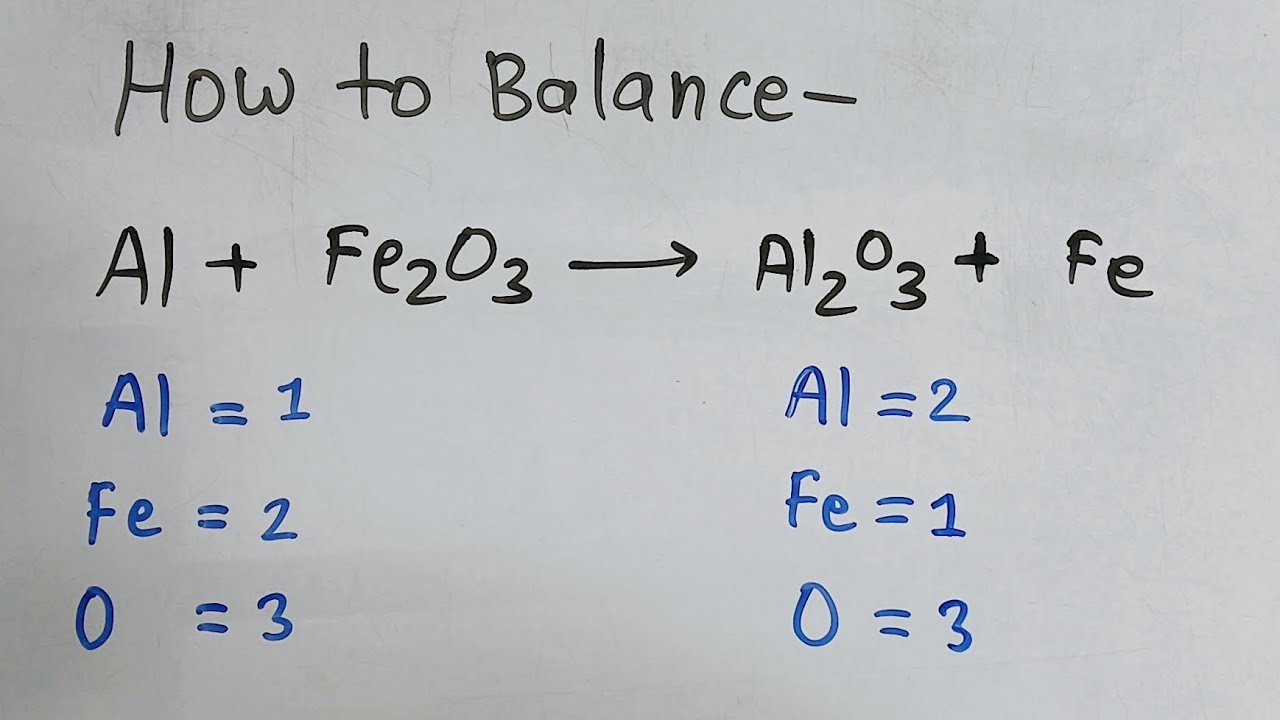 How to Balance-
Al + Fe₂O₃ → Al₂O₃ + Fe
Al = 1 Al = 2
Fe = 2 Fe = 1
O = 3 O = 3